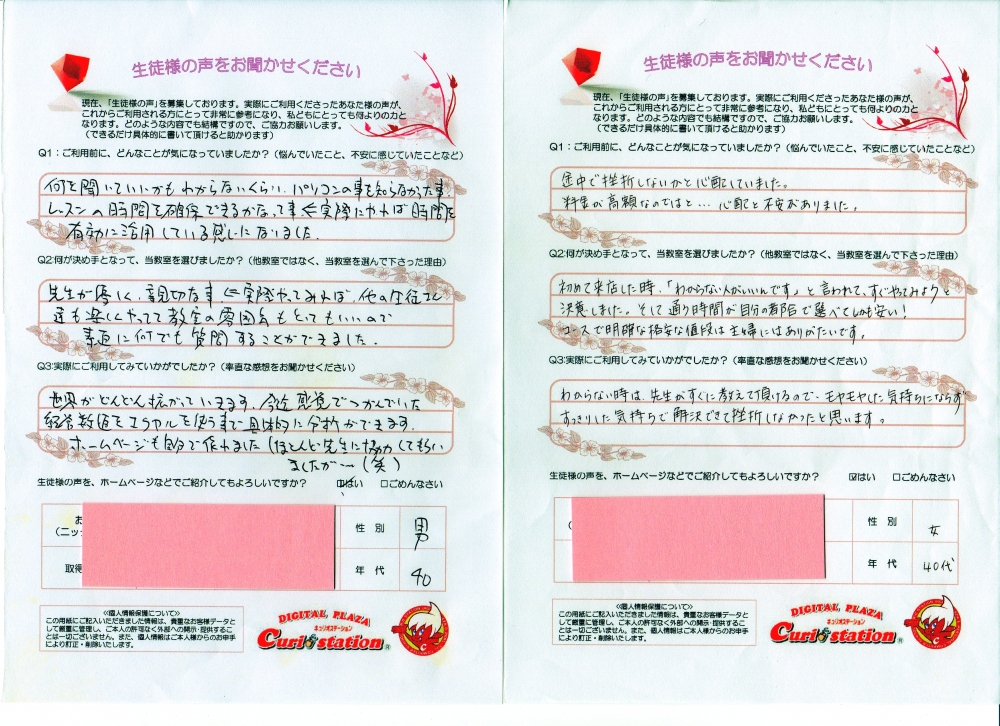 生徒様の声をお聞かせください
現在、「生徒様の声」を募集しております。実際にご利用くださったあなた様の声が、
これからご利用される方にとって非常に参考になり、私どもにとっても何よりの力と
なります。どのような内容でも結構ですので、ご協力お願いします。
（できるだけ具体的に書いて頂けると助かります）
Q1：ご利用前に、どんなことが気になっていましたか？（悩んでいたこと、不安に感じていたことなど）
何を聞いていいかもわからないくらい、パソコンの事を知らなかった事。
レッスンの時間を確保できるかなって事⇐実際にやれば時間を
有効に活用している感じになりました。
Q2:何が決め手となって、当教室を選びましたか？（他教室ではなく、当教室を選んで下さった理由）
先生が優しく、親切な事⇐実際やってみれば、他の生徒さん
達も楽しくやってて教室の雰囲気もとてもいいので
素直に何でも質問することができました。
Q3:実際にご利用してみていかがでしたか？（率直な感想をお聞かせください）
世界がどんどん拡がっていきます。今迄感覚でつかんでいた
経営数値をエクセルを使うまで具体的に分析ができます。
ホームページも自分で作れました（ほとんど先生に協力してもらい
ましたが〜（笑）
生徒様の声を、ホームページなどでご紹介してもよろしいですか？ ☑はい □ごめんなさい
お
（ニッ
性 別 男
取得
年 代 40
≪個人情報保護について≫
この用紙にご記入いただきました情報は、貴重なお客様データと
して厳重に管理し、ご本人の許可なく外部への開示・提供するこ
とは一切ございません。また、個人情報はご本人様からのお申手
により訂正・削除いたします。
DIGITAL PLAZA
キュリオステーション
Curio station
生徒様の声をお聞かせください
現在、「生徒様の声」を募集しております。実際にご利用くださったあなた様の声が、
これからご利用される方にとって非常に参考になり、私どもにとっても何よりの力と
なります。どのような内容でも結構ですので、ご協力お願いします。
（できるだけ具体的に書いて頂けると助かります）
Q1：ご利用前に、どんなことが気になっていましたか？（悩んでいたこと、不安に感じていたことなど）
途中で挫折しないかと心配していました。
料金が高額なのではと…心配と不安がありました。
Q2:何が決め手となって、当教室を選びましたか？（他教室ではなく、当教室を選んで下さった理由）
初めて来店した時、「わからない人がいいんです」と言われて、すぐやってみようと
決意しました。そして通う時間が自分の都合で選べてしかも安い！
コースで明確な格安な値段は主婦にはありがたいです。
Q3:実際にご利用してみていかがでしたか？（率直な感想をお聞かせください）
わからない時は、先生がすぐに教えて頂けるので、モヤモヤした気持ちにならず
すっきりした気持ちで解決できて挫折しなかったと思います。
生徒様の声を、ホームページなどでご紹介してもよろしいですか？ ☑はい □ごめんなさい
（
性 別 女
年 代 40代
≪個人情報保護について≫
この用紙にご記入いただきました情報は、貴重なお客様データと
して厳重に管理し、ご本人の許可なく外部への開示・提供するこ
とは一切ございません。また、個人情報はご本人様からのお申手
により訂正・削除いたします。
DIGITAL PLAZA
キュリオステーション
Curio station